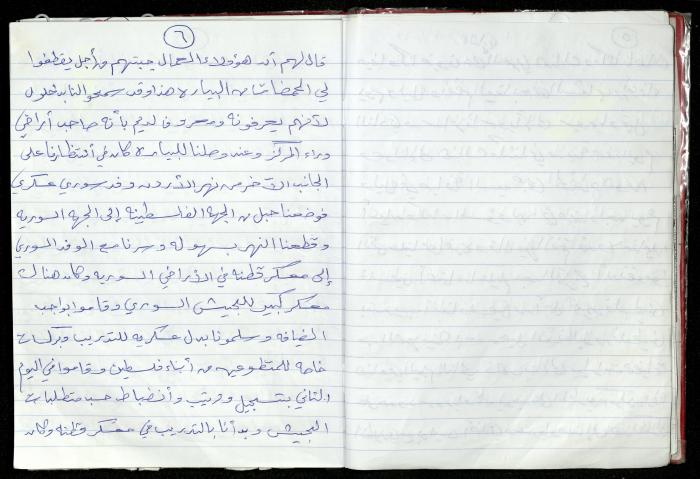 ٦
قال لهم أن هؤولاء العمال جبتهم من أجل يقطفوا
لي الحمضات من البياره هذا وقد سمحوا لنا بدخول
لأنهم يعرفونه ومعروف لديهم بأنه صاحب أراضي
وراء المركز وعند وصلنا للبياره كان في أنتظارنا على
الجانب الآخر من نهر الأردن وفد سوري عسكري
فوضعنا حبل من الجهه الفلسطينه إلى الجهه السوريه
وقطعنا النهر بسهوله وسرنا مع الوفد السوري
إلى معسكر قطنه في الأراضي السوريه وكان هناك
معسكر كبير للجيش السوري وقاموا بواجب
الضيافه وسلمونا بدل عسكريه للتدريب وبركسات
خاصه للمتطوعين من أبناء فلسطين وقاموا في اليوم
الثاني بتسجيل وترتيب وأنضباط حسب متطلبات
الجيش وبدأنا بالتدريب في معسكر قطنه وكان